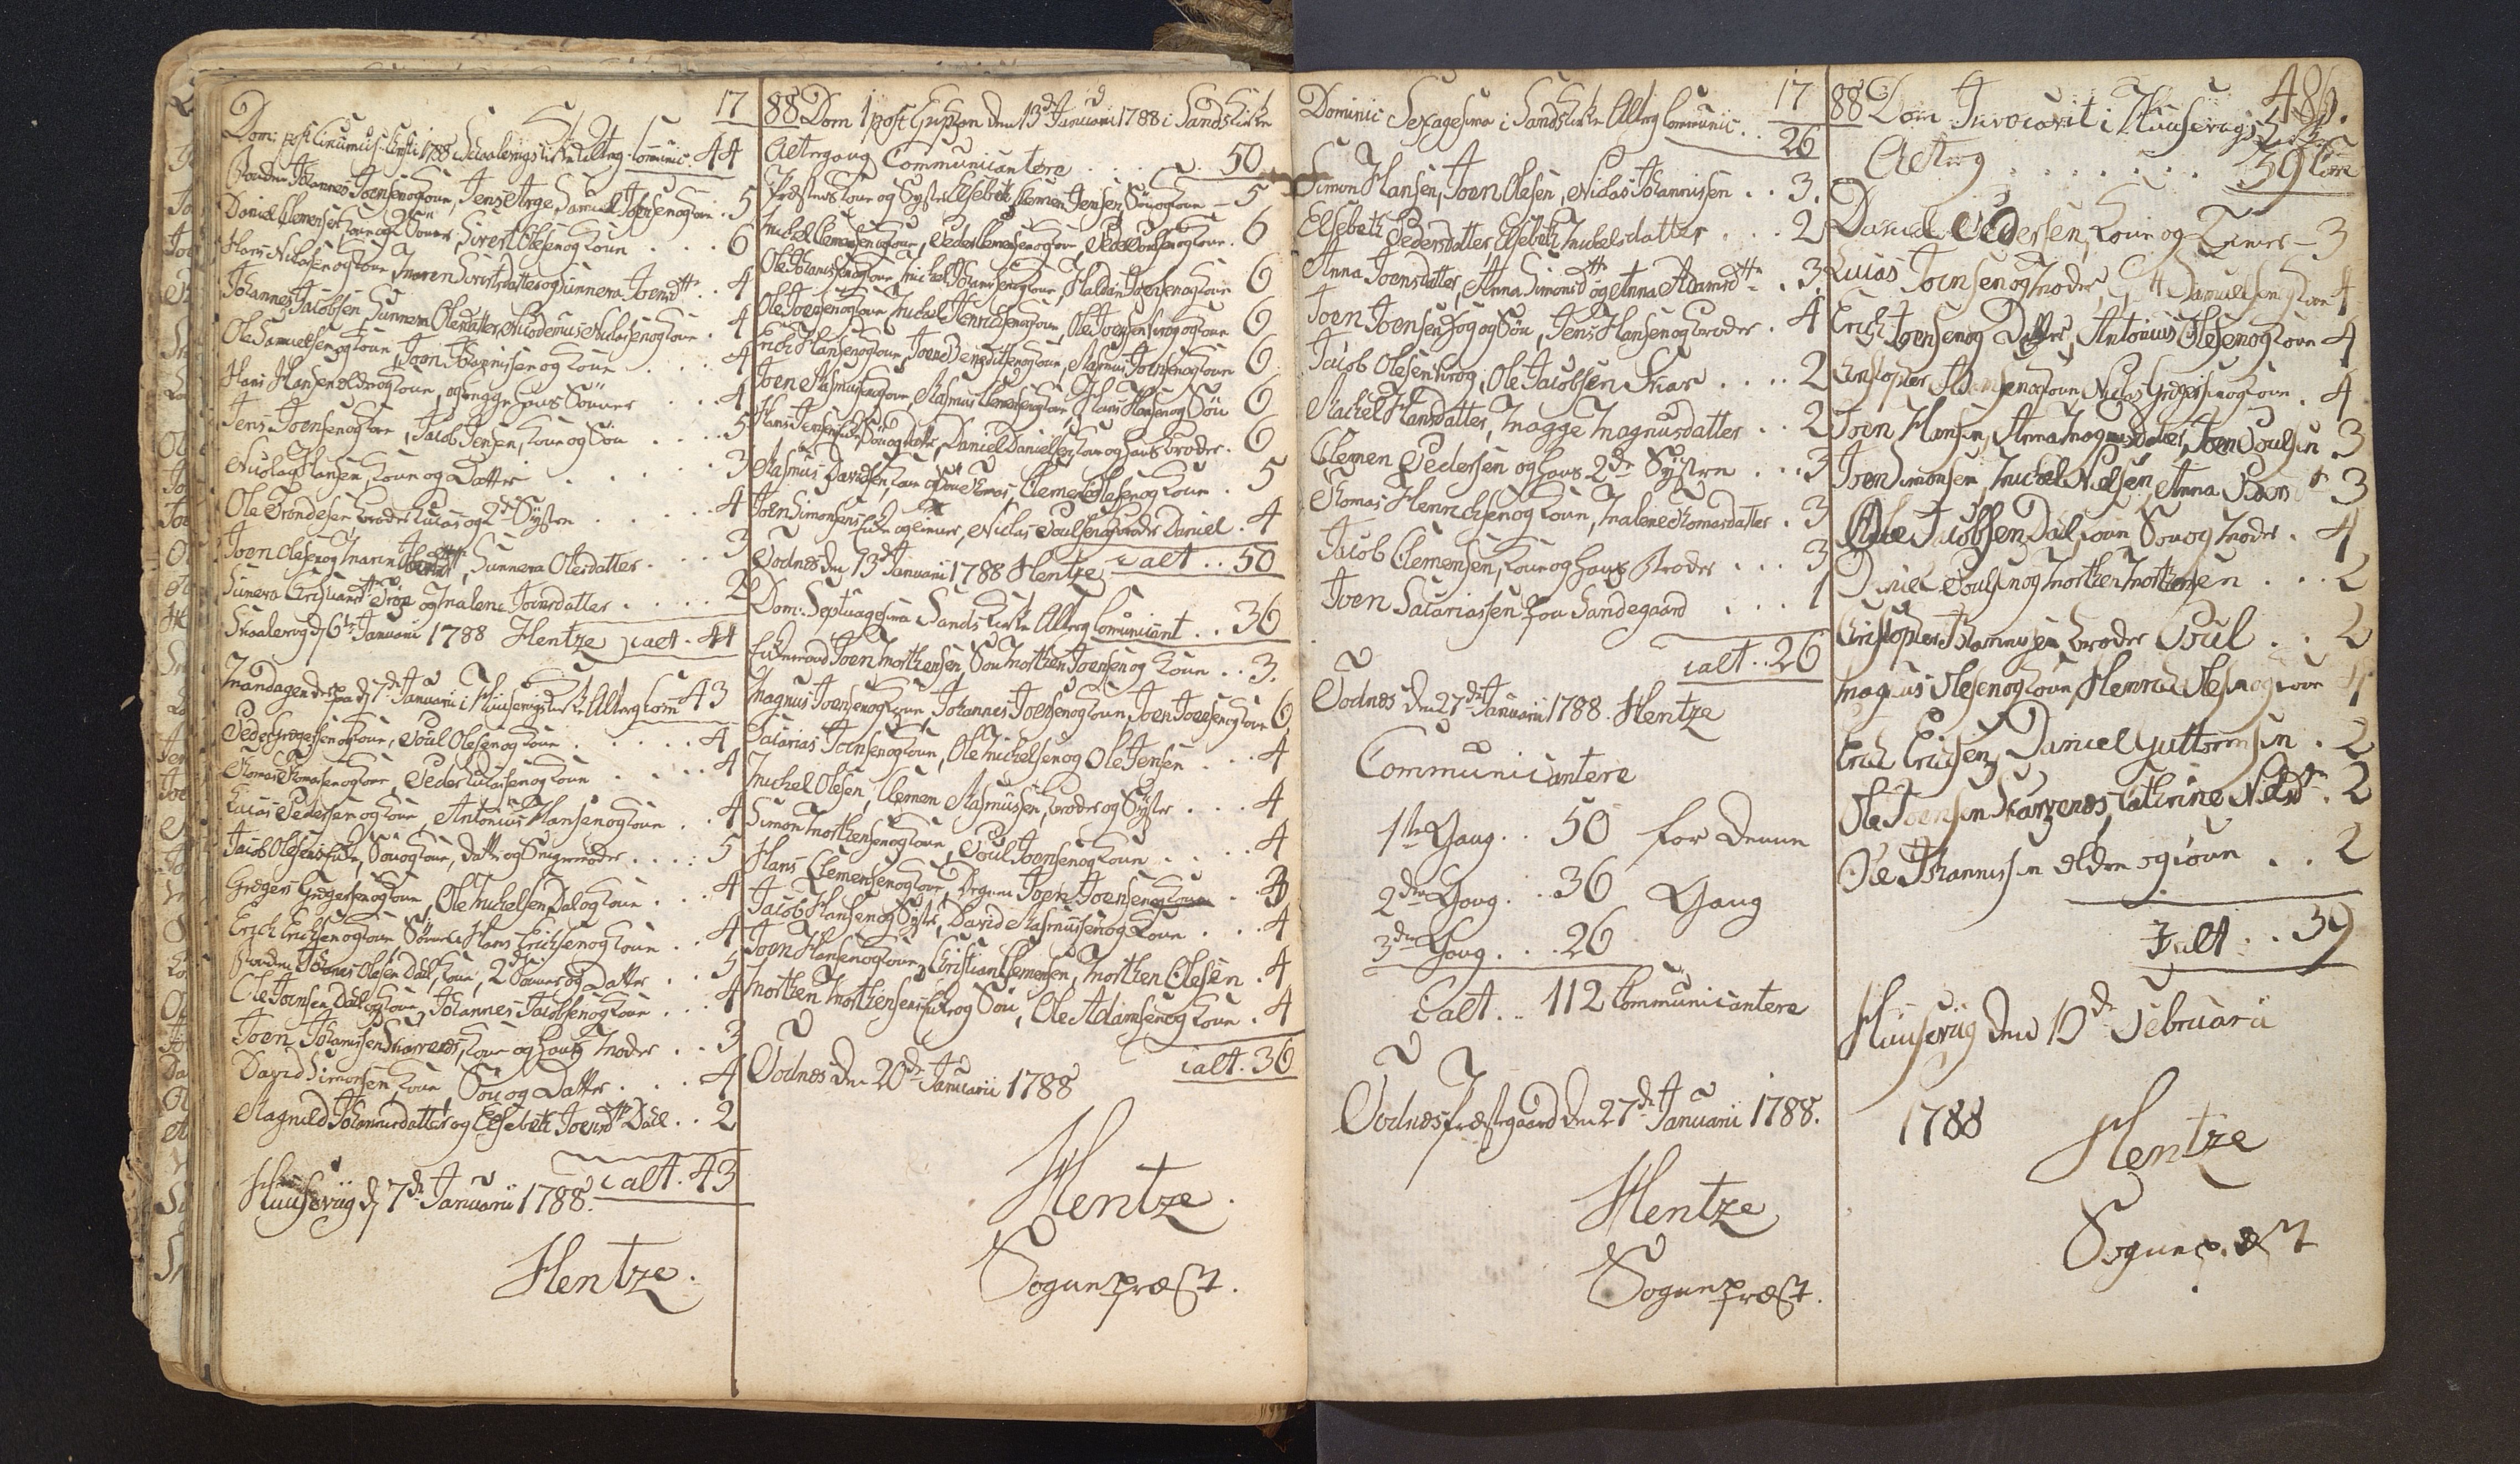 17
Dom: post Circumcis: Christi 1788 Skaalevigs Kirke Alterg. Communic. 44
Bonden Johannes Joensen og Kone, Jens Arge, Samuel Joensen og Kone . 5
Daniel Clemensen Kone og 2de Sönner, Sivert Olesen og Kone . . . 6
Hans Nicolasen og Kone, Maren Sivertsdatter og Sunneva Joensdttr . 4
Johannes Jacobsen, Sunneva Olesdatter, Nicodemus Niclasen og Kone . 4
Ole Samuelsen og Kone, Joen Johannissen og Kone . . . 4
Hans Hansen ældre og Kone, og begge hans Sönner . . . 4
Jens Joensen og Kone, Jacob Jensen, Kone og Sön . . . . 5
Nicolay Hansen, Kone og Datter . . . . . 3
Ole Trondesen, broder Lucas og 2de Systre . . . . . 4
Joen Olesen og Maren, Sunneva Olesdatter . . . 3
Sunneva og Malene Joensdatter . . . . . 2
Skaalevig d 6te Januarii 1788 Hentze ialt . 44
Mandagen derpaa d 7de Januarii i Huusevigs Kirke Alterg. Com 43
Peder Gregersen og Kone, Poul Olesen og Kone . . . . . 4
Thomas Thomasen og Kone, Peder Lucassen og Kone . . . . 4
Lucas Pedersen og Kone, Antonius Hansen og Kone . . 4
Jacob Olesens Enke, Sön og Kone, datter og Svigermoder . . . . 5
Gregers Gregersen og Kone, Ole Michelsen Dal og Kone . . . 4
Erich Erichsen og Kone, Sönnen Hans Erichsen og Kone . . 4
Bonden Johannes Olesen Dahl, Kone, 2de Sönner og Datter . . 5
Ole Joensen Dahl og Kone, Johannes Jacobsen og Kone . . . 4
Joen Johannissen Skarvenes, Kone og hans Moder . . 3
David Simonsen, Kone, Sön og Datter . . . 4
Ragnild Johannisdatter og Elsebeth Joensdttr Dahl . . 2
ialt . 43
Huusevig d 7de Januarii 1788.
Hentze.
88 Dom 1 post Epiphan den 13de Januarii 1788 i Sands Kirke
Altergang Communicantere . . . 50
Præstens Kone og Syster Elsebeth, Clemen Jensen, Sön og Kone — 5
Michel Clemensen og Kone, Peder Clemensen og Kone, Peder Poulsen og Kone . 6
Ole Johannissen og Kone, Michel Johannissen og Kone, Haldan Joensen og Kone 6
Ole Joensen og Kone, Michel Henrichsen og Kone, Ole Joensen Krog og Kone 6
Erich Hansen og Kone, Joen Benedictsen og Kone, Rasmus Joensen og Kone 6
Joen Rasmussen og Kone, Rasmus Clemensen og Kone, Hans Hansen og Sön 6
Hans Jensens Enke, Sön og Datter, Daniel Danielsen, Kone og hans broder . 6
Rasmus Davidsen, Kone og Sön Thomas, Clemen Olesen og Kone . 5
Joen Simonsens Enke og Enner, Niclas Poulsen og broder Daniel . 4
Todnes den 13de Januarii 1788 Hentze ialt . . 50
Dom: Septuagesima Sands Kirke Alterg Comunicant . . 36
Joen Morthensen, Sön Morthen Joensen og Kone . . 3.
Magnus Joensen og Kone, Johannes Joensen og Kone, Joen Joensen og Kone 6
Sacarias Joensen og Kone, Ole Michelsen og Ole Jensen . . . 4
Michel Olesen, Clemen Rasmussen, broder og Syster . . . 4
Simon Morthensen og Kone, Poul Joensen og Kone . . . . 4
Hans Clemensen og Kone, Degnen Joen Joensen og Kone . 3
Jacob Hansen og Syster, David Rasmussen og Kone . . . 4
Joen Hansen og Kone, Christian Clemensen, Morthen Olesen . 4
Morthen Morthensens Enke og Sön, Ole Adamsen og Kone . 4
ialt . 36
Todnes den 20de Januarii 1788
Hentze.
Sognepræst.
17
Dominic Sexagesima i Sands Kirke Alterg Communic . . 26
Simon Hansen, Joen Olesen, Niclas Johannissen . . 3.
Elsebeth Pedersdatter, Elsebeth Michelsdatter . . . 2
Anna Joensdatter, Anna Simonsdttr og Anna Adamsdttr . 3.
Joen Joensen og Sön, Jens Hansen og broder . 4
Jacob Olesen Krog, Ole Jacobsen Skar . . . . 2
Rachel Hansdatter, Magge Magnusdatter . . 2
Clemen Pedersen og hans 2de Systre . . . 3
Thomas Henrichsen og Kone, Malene Thomasdatter . 3
Jacob Clemensen, Kone og hans Broder . . . 3
Joen Sacariassen fra Sandegaard . . . 1
ialt . . 26
Todnes den 27de Januarii 1788. Hentze
Communicantere
1ste Gang . . 50 for denne
2den Gang . . 36 Gang
3die Gang . . . 26
ialt . . 112 Communicantere
Todnes Præstegaard den 27de Januarii 1788.
Hentze
Sognepræst.
486.
88 Dom Invocavit i Huusevigs Kirke
Alterg . . . . . . . 39
Daniel Pedersen, Kone og — 3
Lucas Joensen og Moder, Samuelsen og Kone 4
Erich Joensen og Datter, Antonius Olesen og Kone 4
Christopher og Kone, Niclas Gregersen og Kone . 4
Joen Hansen, Anna Magnusdatter, Joen Poulsen 3
Joen Simonsen, Michel Nielsen, Anna 3
Ole Jacobsen Dal, Kone, Sön og Moder . 4
Daniel Poulsen og Morthen Morthensen . . . 2
Christopher Johannissen, broder Poul . . 2
Magnus Olesen og Kone, Henrich Olesen og Kone 4
Erich Erichsen, Daniel Guttormsen . 2
Ole Joensen Skarvenes, Cathrine . 2
Ole Johannissen ældre og Kone . . 2
Ialt . . 39
Huusevig den 10de Februarii
1788
Hentze
Sognepræst